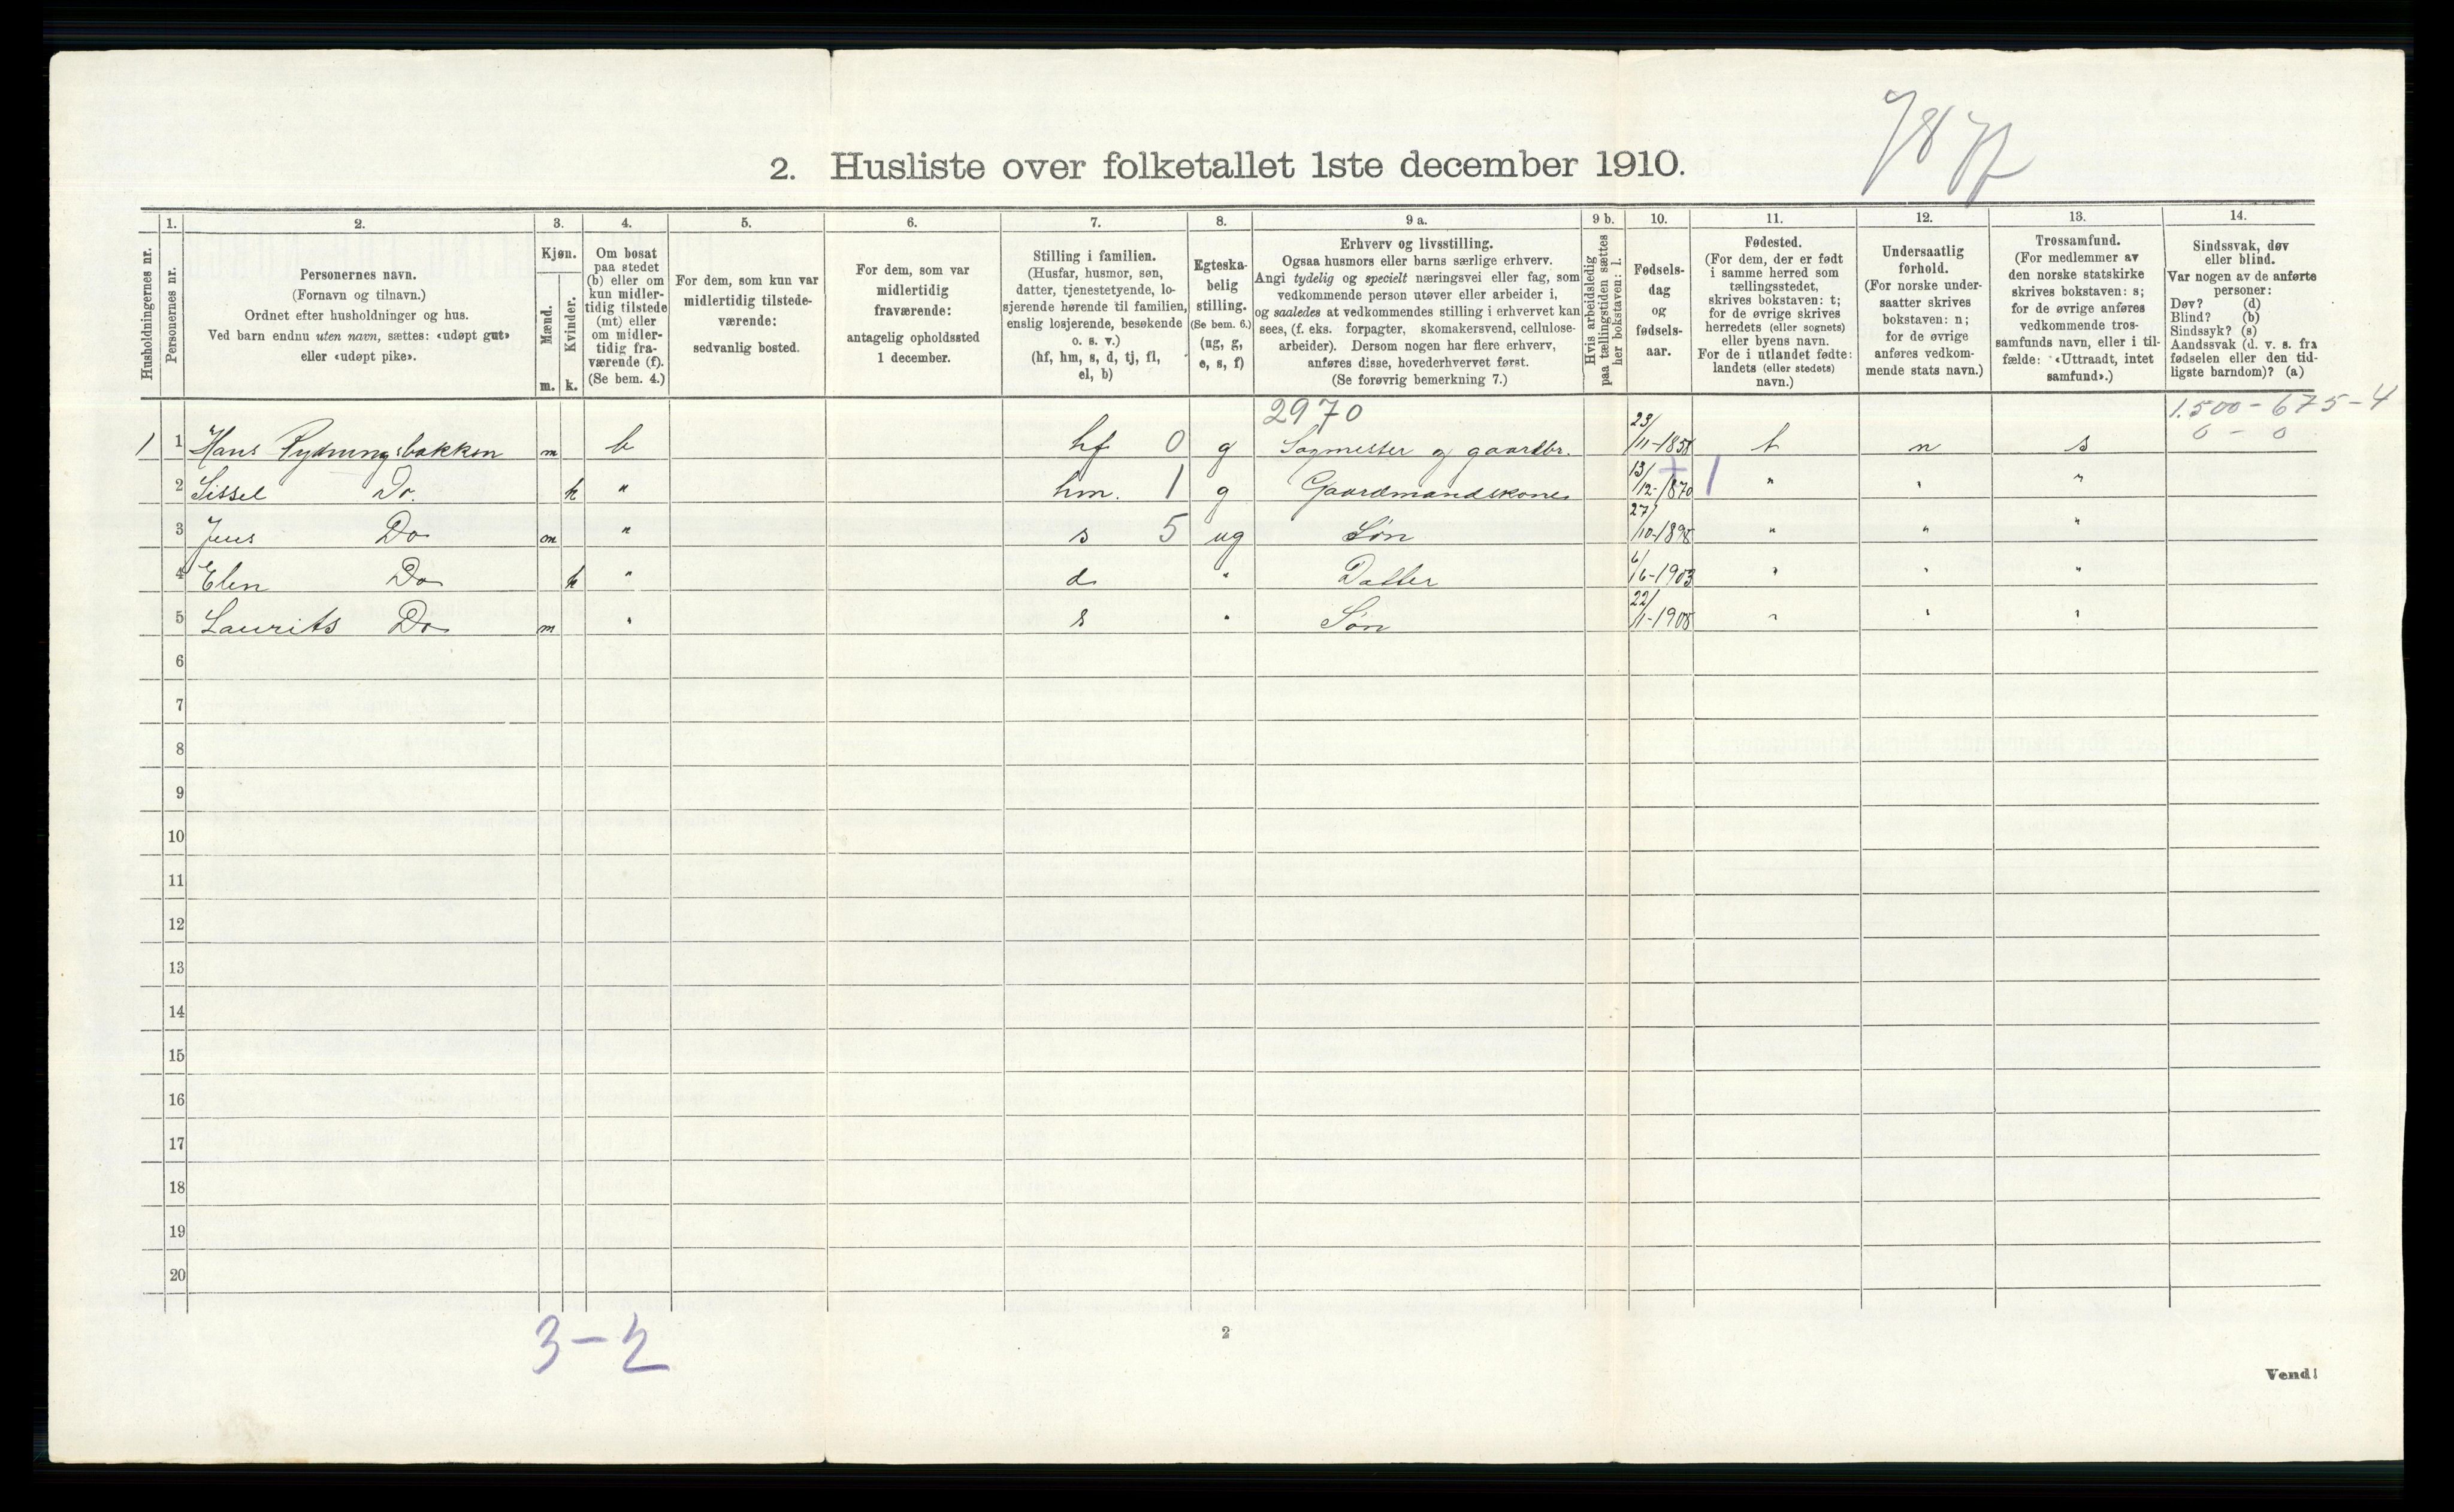 2. Husliste over folketallet 1ste december 1910.
Husholdningernes nr.
1.
Personernes nr.
2.
Personernes navn.
(Fornavn og tilnavn.)
Ordnet efter husholdninger og hus.
Ved barn endnu uten navn, sættes: «udøpt gut»
eller «udøpt pike».
3.
Kjøn.
Mænd.
Kvinder.
m. k.
4.
Om bosat
paa stedet
(b) eller om
kun midler-
tidig tilstede
(mt) eller
om midler-
tidig fra-
værende (f).
(Se bem. 4.)
5.
For dem, som kun var
midlertidig tilstede-
værende:
sedvanlig bosted.
6.
For dem, som var
midlertidig
fraværende:
antagelig opholdssted
1 december.
7.
Stilling i familien.
(Husfar, husmor, søn,
datter, tjenestetyende, lo-
sjerende hørende til familien,
enslig losjerende, besøkende
o. s. v.)
(hf, hm, s, d, tj, fl,
el, b)
8.
Egteska-
belig
stilling.
(Se bem. 6.)
(ug, g,
e, s, f)
9 a.
Erhverv og livsstilling.
Ogsaa husmors eller barns særlige erhverv.
Angi tydelig og specielt næringsvei eller fag, som
vedkommende person utøver eller arbeider i,
og saaledes at vedkommendes stilling i erhvervet kan
sees, (f. eks. forpagter, skomakersvend, cellulose-
arbeider). Dersom nogen har flere erhverv,
anføres disse, hovederhvervet først.
(Se forøvrig bemerkning 7.)
9 b.
Hvis arbeidsledig
paa tællingstiden sættes
her bokstaven: l.
10.
Fødsels-
dag
og
fødsels-
aar.
11.
Fødested.
(For dem, der er født
i samme herred som
tællingsstedet,
skrives bokstaven: t;
for de øvrige skrives
herredets (eller sognets)
eller byens navn.
For de i utlandet fødte:
landets (eller stedets)
navn.)
12.
Undersaatlig
forhold.
(For norske under-
saatter skrives
bokstaven: n;
for de øvrige
anføres vedkom-
mende stats navn.)
13.
Trossamfund.
(For medlemmer av
den norske statskirke
skrives bokstaven: s;
for de øvrige anføres
vedkommende tros-
samfunds navn, eller i til-
fælde: «Uttraadt, intet
samfund».)
14.
Sindssvak, døv
eller blind.
Var nogen av de anførte
personer:
Døv? (d)
Blind? (b)
Sindssyk? (s)
Aandssvak (d. v. s. fra
fødselen eller den tid-
ligste barndom)? (a)
2970
1.500 - 675 - 4
0 - 0
1 1 Hans Rydningsbakken m b hf 0 g Sagmester og gaardbr. 23/11-1858 t n s
2 Sissel Do. k " hm. 1 g Gaardmandskone 13/12-1870 1 " " "
3 Jens Do m " s 5 ug Søn 27/10-1898 " " "
4 Elen Do k " d " Datter 6/6-1903 " " "
5 Laurits Do m " s " Søn 22/1-1908 " " "
6
7
8
9
10
11
12
13
14
15
16
17
18
19
20
3-2
2
Vend!